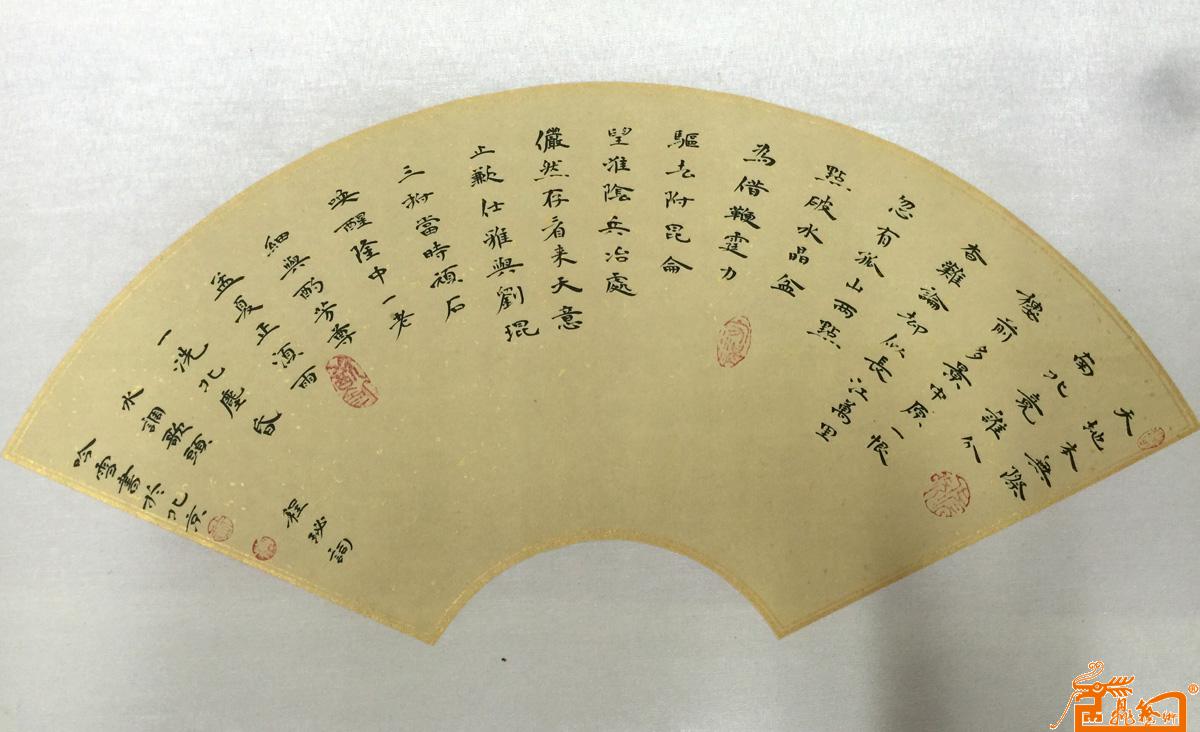 天地本無際
南北竟誰分
樓前多景中原一恨
杳難論却似長江萬里
忽有孤山兩點
點破水晶盆
為借鞭霆力
驅去附昆侖
望淮陰兵冶處
儼然存看来天意
止歉仕雅與劉琨
三拊當時頑石
喚醒隆中一老
細與酌芳尊
孟夏正須雨
一洗北塵昏
水調歌頭
程珌詞
吟雪書於北京